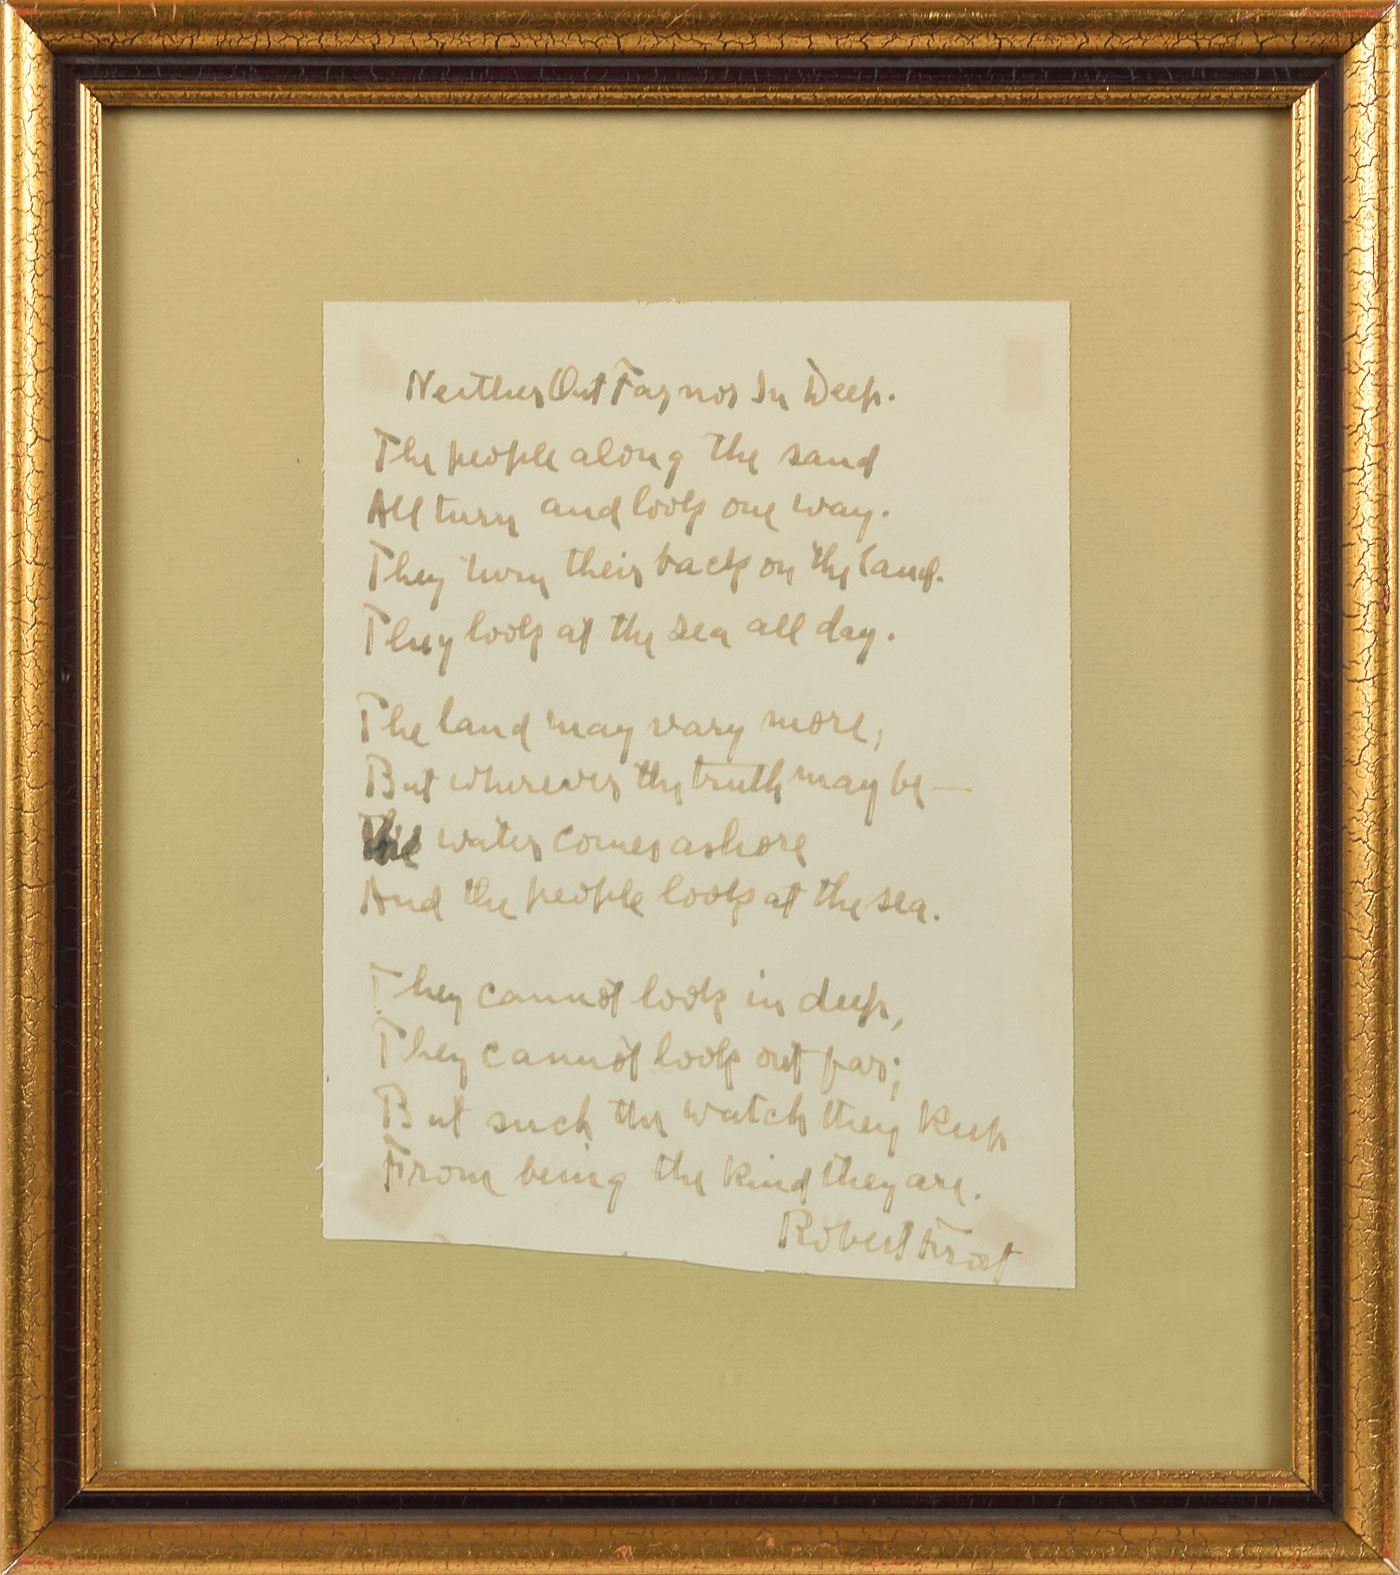 Neither Out Far nor In Deep.
The people along the sand
All turn and look one way.
They turn their back on the land.
They look at the sea all day.
The land may vary more,
But wherever the truth may be—
The water comes ashore
And the people look at the sea.
They cannot look in deep,
They cannot look out far;
But such the watch they keep
From being the kind they are.
Robert Frost